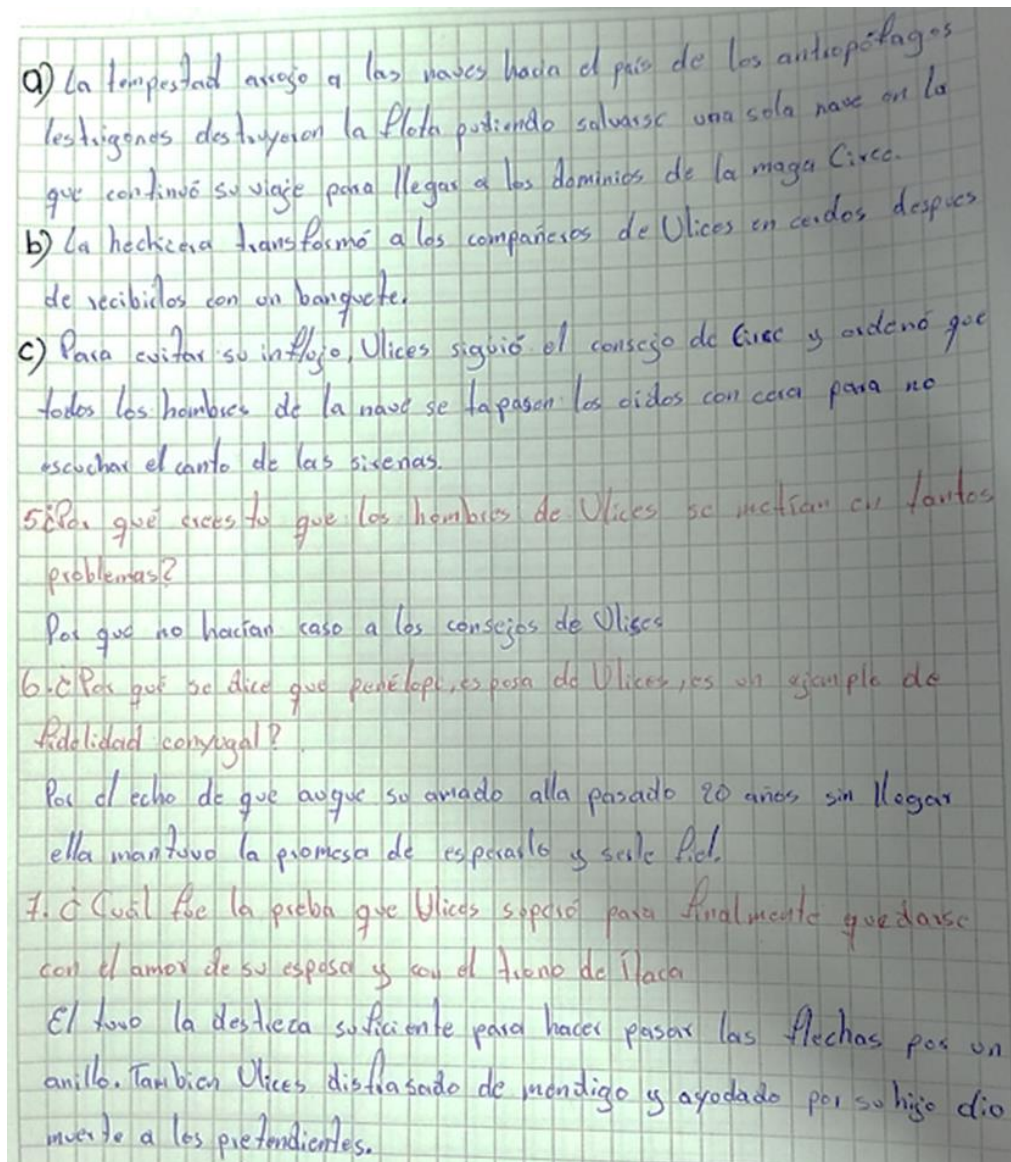 a) La tempestad arrojo a las naves hacia el pais de los antropófagos
lestrigones destruyeron la flota pudiendo salvarse una sola nave en la
que continuó su viaje para llegar a los dominios de la maga Circe.
b) La hechicera transformó a los compañeros de Ulices en cerdos despues
de recibirlos con un banquete.
c) Para evitar su influjo, Ulices siguió el consejo de Circe y ordenó que
todos los hombres de la nave se tapasen los oidos con cera para no
escuchar el canto de las sirenas.
5 ¿Por qué crees tu que los hombres de Ulices se metian en tantos
problemas?
Por que no hacían caso a los consejos de Ulises
6. ¿Por qué se dice que penélope, esposa de Ulices, es un ejemplo de
fidelidad conyugal?
Por el echo de que auque su amado alla pasado 20 años sin llegar
ella mantuvo la promesa de esperarlo y serle fiel.
7. ¿Cuál fue la preba que Ulices superó para finalmente quedarse
con el amor de su esposa y con el trono de Itaca
El tuvo la destreza suficiente para hacer pasar las flechas por un
anillo. Tambien Ulices disfrasado de mendigo y ayudado por su hijo dio
muerte a los pretendientes.